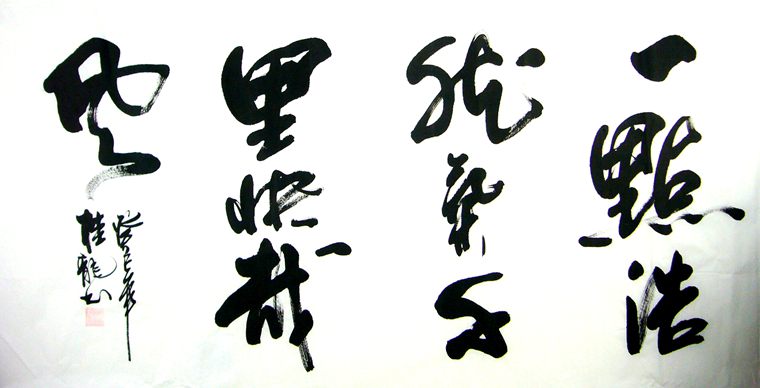 一點浩
然氣千
里快哉
風
癸巳年
桂龍书